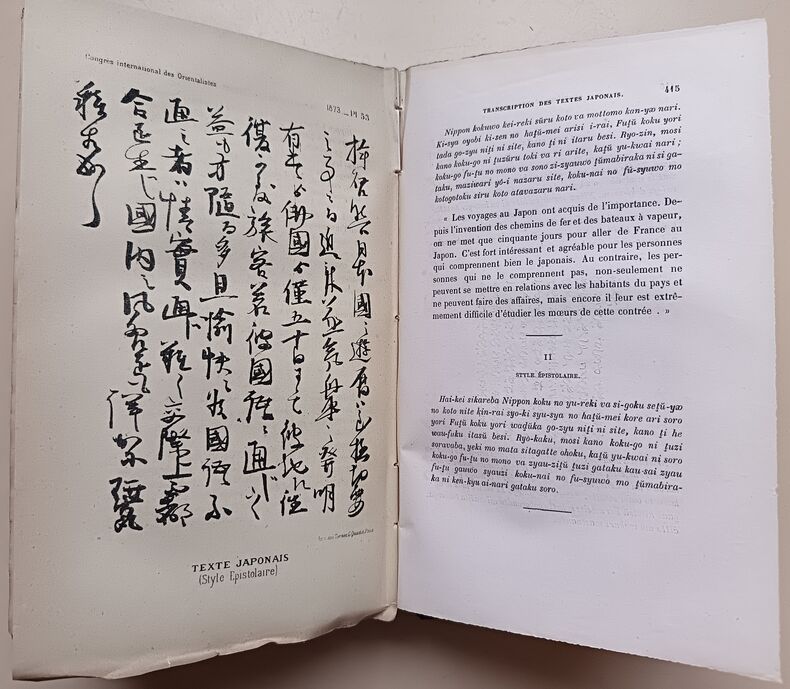 Congrès international des Orientalistes
1873
日本國之遊歴 至極切要
近来蒸氣舟車之發明
佛國 僅五十日 彼地 往
復 彼國語 通
益 方隨 多且愉快 國語不
通之者 情實通 難 交際上
國内之風
TEXTE JAPONAIS
(Style Epistolaire)
TRANSCRIPTION DES TEXTES JAPONAIS.
415
Nippon kokuwo kei-reki sŭru koto va mottomo kan-yao nari.
Ki-sya oyobi ki-sen no haţŭ-mei arisi i-rai, Futŭ koku yori
tada go-zyu niţi ni site, kano ţi ni itaru besi. Ryo-zin, mosi
kano koku-go ni ţuzŭru toki va ri arite, kaţŭ yu-kwai nari ;
koku-go fu-ţu no mono va sono zi-zyauwo ţŭmabiraka ni si ga-
taku, maziwari yŏ-i nazaru site, koku-nai no fŭ-syuwo mo
kotogotoku siru koto atavazaru nari.
« Les voyages au Japon ont acquis de l'importance. De-
puis l'invention des chemins de fer et des bateaux à vapeur,
on ne met que cinquante jours pour aller de France au
Japon. C'est fort intéressant et agréable pour les personnes
qui comprennent bien le japonais. Au contraire, les per-
sonnes qui ne le comprennent pas, non-seulement ne
peuvent se mettre en relations avec les habitants du pays et
ne peuvent faire des affaires, mais encore il leur est extrê-
mement difficile d'étudier les mœurs de cette contrée . »
II
STYLE ÉPISTOLAIRE.
Hai-kei sikareba Nippon koku no yu-reki va si-goku seţŭ-yao
no koto nite ķin-rai syo-ki syu-sya no haţŭ-mei kore ari soro
yori Futŭ koku yori waďuka go-zyu niţi ni site, kano ţi he
wau-fuku itasŭ besi. Ryo-kaku, mosi kano koku-go ni ţuzi
soravaba, yeki mo mata sitagatte ohoku, kaţŭ yu-kwai ni soro
koku-go fu-ţu no mono va zyau-zitŭ ţuzi gataku kau-sai zyau
fu-ţu gauwo syauzi koku-nai no fu-syuwo mo ţŭmabira-
ka ni ken-kyu ai-nari gataku soro.